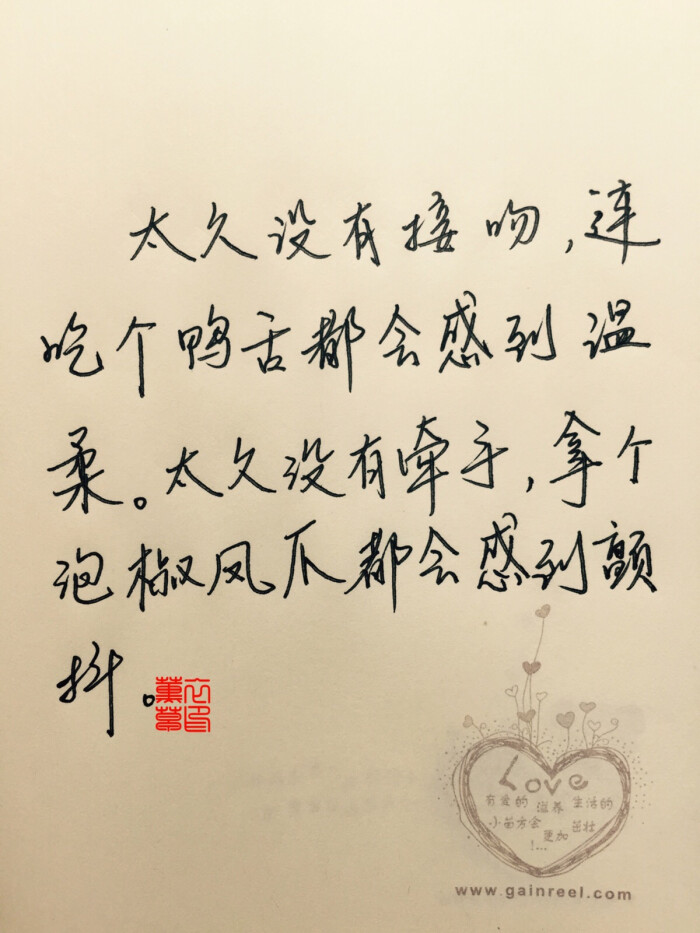 太久没有接吻,连
吃个鸭舌都会感到温
柔。太久没有牵手,拿个
泡椒凤爪都会感到颤
抖。
Love
有爱的 滋养 生活的
小苗方会 更加 茁壮
!...
www.gainreel.com